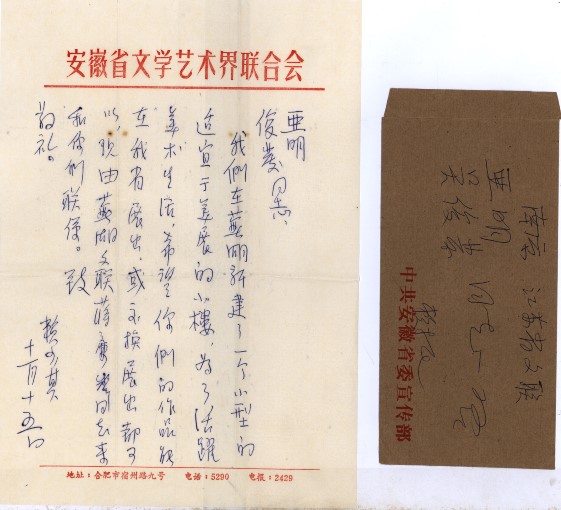 安徽省文学艺术界联合会
亜明
俊發同志、
我们在蕪湖新建了一个小型的
适宜于美展的小樓，为了活躍
美术生活，希望你们的作品能
在我省展出，或交换展出都可
以，现由蕪湖文联蒋同志来
和你们联系。致
敬礼。
赖少其
十一月十五日
地址：合肥市宿州路九号 电话：5290 电报：2429
南京 江苏省文联
亜明
吴俊發 同志 收
中共安徽省委宣传部